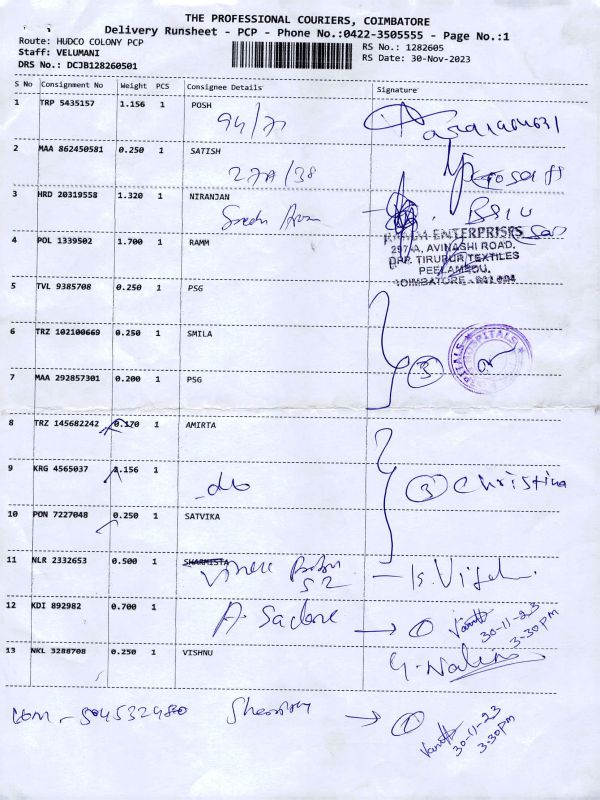 THE PROFESSIONAL COURIERS, COIMBATORE
Delivery Runsheet - PCP - Phone No.:0422-3505555 - Page No.:1
Route: HUDCO COLONY PCP
RS No.: 1282605
Staff: VELUMANI
RS Date: 30-Nov-2023
DRS No.: DCJB128260501
S No Consignment No Weight PCS Consignee Details Signature
1 TRP 5435157 1.156 1 POSH
94/71
2 MAA 862450581 0.250 1 SATISH
27A/38
3 HRD 20319558 1.320 1 NIRANJAN
4 POL 1339502 1.700 1 RAMM
ENTERPRISES
297-A, AVINASHI ROAD,
OPP. TIRUPUR TEXTILES
PEELAMEDU,
COIMBATORE - 641 004
5 TVL 9385708 0.250 1 PSG
6 TRZ 102100669 0.250 1 SMILA
3
7 MAA 292857301 0.200 1 PSG
8 TRZ 145682242 0.170 1 AMIRTA
9 KRG 4565037 1.156 1
do
3 Christina
10 PON 7227048 0.250 1 SATVIKA
11 NLR 2332653 0.500 1 SHARMISTA
52
12 KDI 892982 0.700 1
1
30-11-23
3-30pm
13 NKL 3288708 0.250 1 VISHNU
1
30-11-23
3-30pm